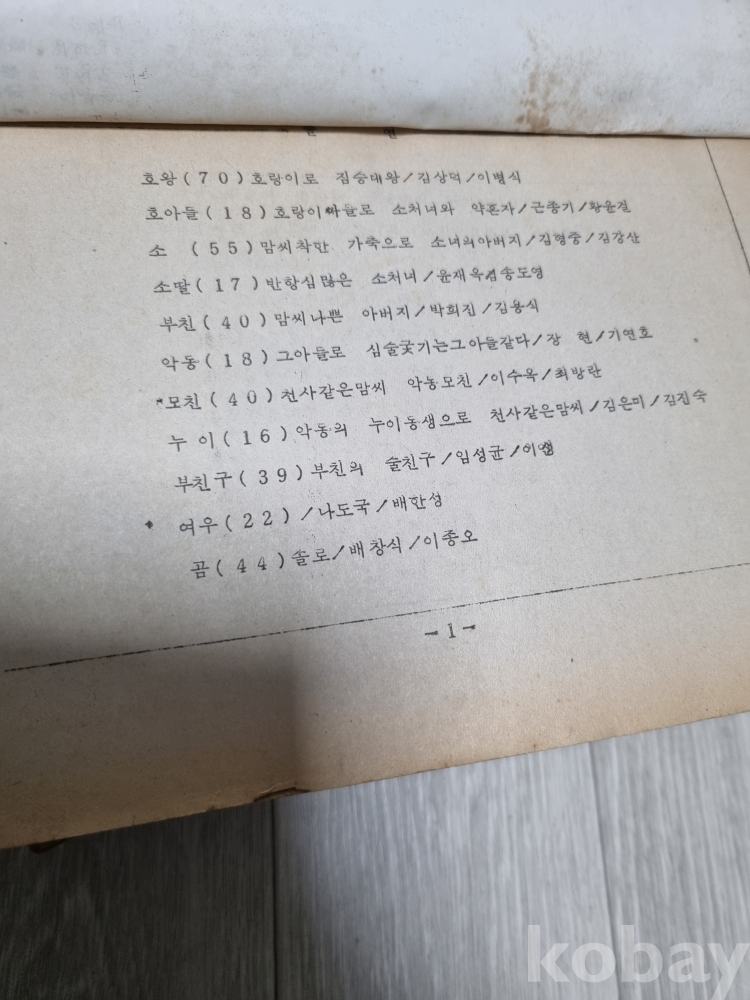 연
호왕(70)호랑이로 짐승대왕/김상덕/이병식
호아들(18)호랑이아들로 소처녀와 약혼자/근종기/황윤걸
소 (55)맘씨착한 가축으로 소녀의아버지/김형중/김강산
소딸(17)반항심많은 소처녀/윤재옥겸송도영
부친(40)맘씨나쁜 아버지/박희진/김용식
악동(18)그아들로 심술궂기는그아들같다/장 현/기연호
모친(40)천사같은맘씨 악동모친/이수옥/최방란
누이(16)악동의 누이동생으로 천사같은맘씨/김은미/김진숙
부친구(39)부친의 술친구/임성균/
여우(22)/나도국/배한성
곰(44)솔로/배창식/이종오
-1-
kobay